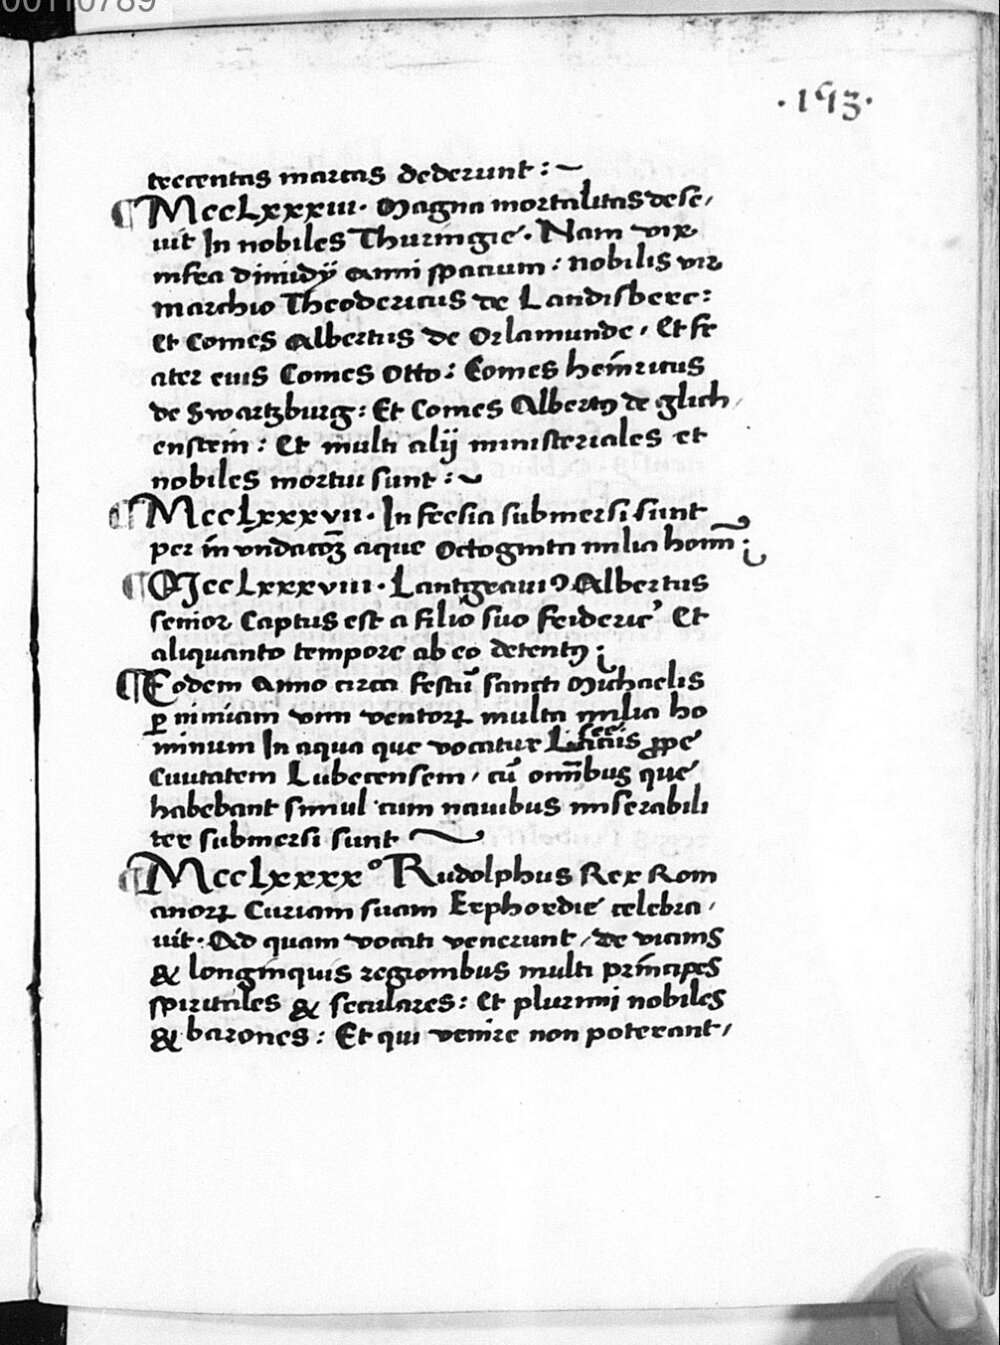 00110789
·193·
trecentas marcas dederunt :~
¶ MccLxxxiii. Magna mortalitas dese,
uit In nobiles Thuringie. Nam vix
infra dimidÿ anni spacium : nobilis vir
marchio Theodericus de Landisberc:
Et Comes Albertus de Orlamunde, Et fr
ater eius Comes Otto : Comes heinricus
de Swartzburg : Et Comes Albertꝰ de glich,
enstein : Et multi alij ministeriales et
nobiles mortui sunt :~
¶ MccLxxxvii. In fresia submersi sunt
per in vndacōꝫ aque Octoginta milia homī :
¶ MccLxxxviii. Lantgrauiꝰ Albertus
senior Captus est a filio suo frideric' Et
aliquanto tempore ab eo detentꝰ ;
¶ Eodem Anno circa festū sancti Michaelis
ꝑ nimiam vim ventoꝝ multa milia ho
minum In aqua que vocatur ꝓpe
Ciuitatem Lubecensem, cū omībus que
habebant simul cum nauibus miserabili
ter submersi sunt ~
¶ MccLxxxx° Rudolphus Rex Rom
anoꝝ Curiam suam Erphordie celebra,
uit. Ad quam vocati venerunt, de vicinis
& longinquis regionibus multi principes
spirituales & seculares : Et plurimi nobiles
& barones : Et qui venire non poterant,